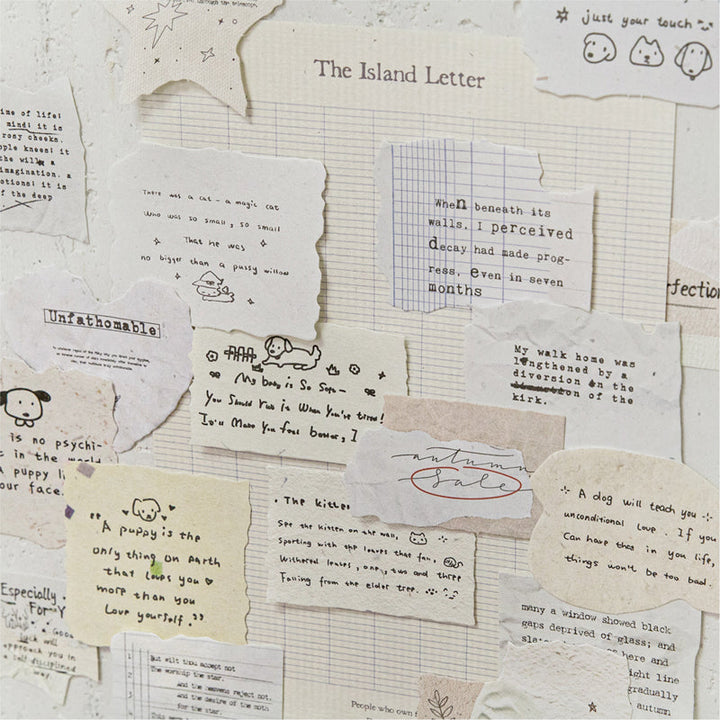 through the telescope.
just your touch
The Island Letter
ime of life;
mind; it is
rosy cheeks,
ple knees; it
the will, a
imagination, a
otions; it is
f the deep
There was a cat - a magic cat
Who was so small, so small
That he was
no bigger than a pussy willow
When beneath its
walls. I perceived
decay had made prog-
ress, even in seven
months
rfection
Unfathomable
My baby is So Sofa-
You Should rub it When You're tired!
It'll Make You feel better, I
My walk home was
lengthened by a
diversion in the
of the
kirk.
is no psychi-
t in the world
A puppy li
our face.
autumn
Sale
A dog will teach you
unconditional love. If you
Can have that in you life,
things won't be too bad.
"A puppy is the
only thing on earth
that loves you
more than you
Love yourself."
. The kitten
See the kitten on the wall,
Sporting with the leaves that fall,
Withered leaves, one, two and three
Falling from the elder tree.
Especially
For Y
Good
luck will
approach you in
self disciplined
way
many a window showed black
gaps deprived of glass; and
slat here and
ight line
gradually
autumn
But wilt thou accept not
The worship the star.
And the heavens reject not.
And the desire of the moth
for the star.
People who own